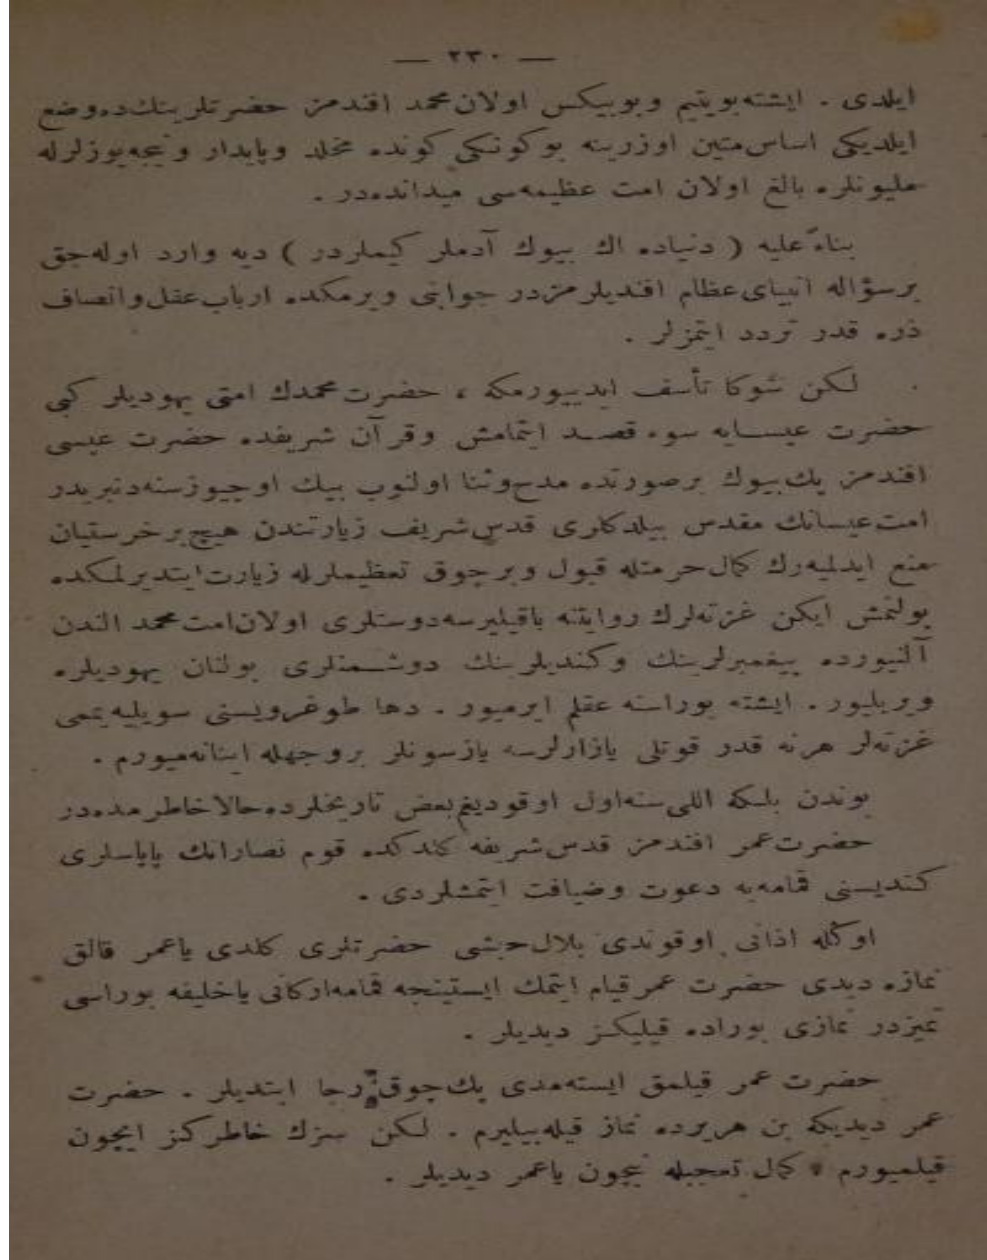 — ٢٣٠ —
ايلدى . ايشته بويتيم و بوبيكس اولان محمد افندمز حضرتلرينك ده وضع
ايلديكى اساس متين اوزرينه بوكونكى كونده مخلد وپايدار و نيجه يوزلرله
مليونلره بالغ اولان امت عظيمه سى ميدانده در .
بناءً عليه ( دنياده اك بيوك آدملر كيملردر ) ديه وارد اوله جق
برسؤاله انبياى عظام افنديلر مزدر جوابنى ويرمكده ارباب عقل و انصاف
ذره قدر تردد ايتمزلر .
لكن شوكا تأسف ايدييورمكه ، حضرت محمدك امتى يهوديلر كبى
حضرت عيسايه سوء قصد ايتمامش وقرآن شريفده حضرت عيسى
افندمز پك بيوك برصورتده مدح وثنا اولنوب بيك اوچيوز سنه دنبريدر
امت عيسانك مقدس بيلدكلرى قدس شريف زيارتندن هيچ بر خرستيان
منع ايدلميه رك كمال حرمتله قبول و برچوق تعظيملرله زيارت ايتديرلمكده
بولنمش ايكن غزته لرك روايتنه باقيليرسه دوستلرى اولان امت محمد الندن
آلنيورده پيغمبرلرينك وكنديلرينك دوشمنلرى بولنان يهوديلره
ويريليور . ايشته بوراسنه عقلم ايرميور . دها طوغرويسنى سويليه يمى
غزته لر هرنه قدر قوتلى يازارلرسه يازسونلر بروجهله اينانه ميورم .
بوندن بلكه اللى سنه اول اوقوديغم بعض تاريخلرده حالا خاطرمده در
حضرت عمر افندمز قدس شريفه كتدكده قوم نصارانك پاپاسلرى
كنديسنى قمامه يه دعوت وضيافت ايتمشلردى .
اوكله اذانى اوقوندى بلال حبشى حضرتلرى كلدى ياعمر قالق
نمازه ديدى حضرت عمر قيام ايتمك ايستينجه قمامه اركانى ياخليفه بوراسى
تميزدر نمازى بوراده قيليكز ديديلر .
حضرت عمر قيلمق ايسته مدى پك چوق رجا ايتديلر . حضرت
عمر ديديكه بن هريرده نماز قيله بيليرم . لكن سزك خاطركز ايچون
قيلميورم كمال تعجبله نيچون ياعمر ديديلر .